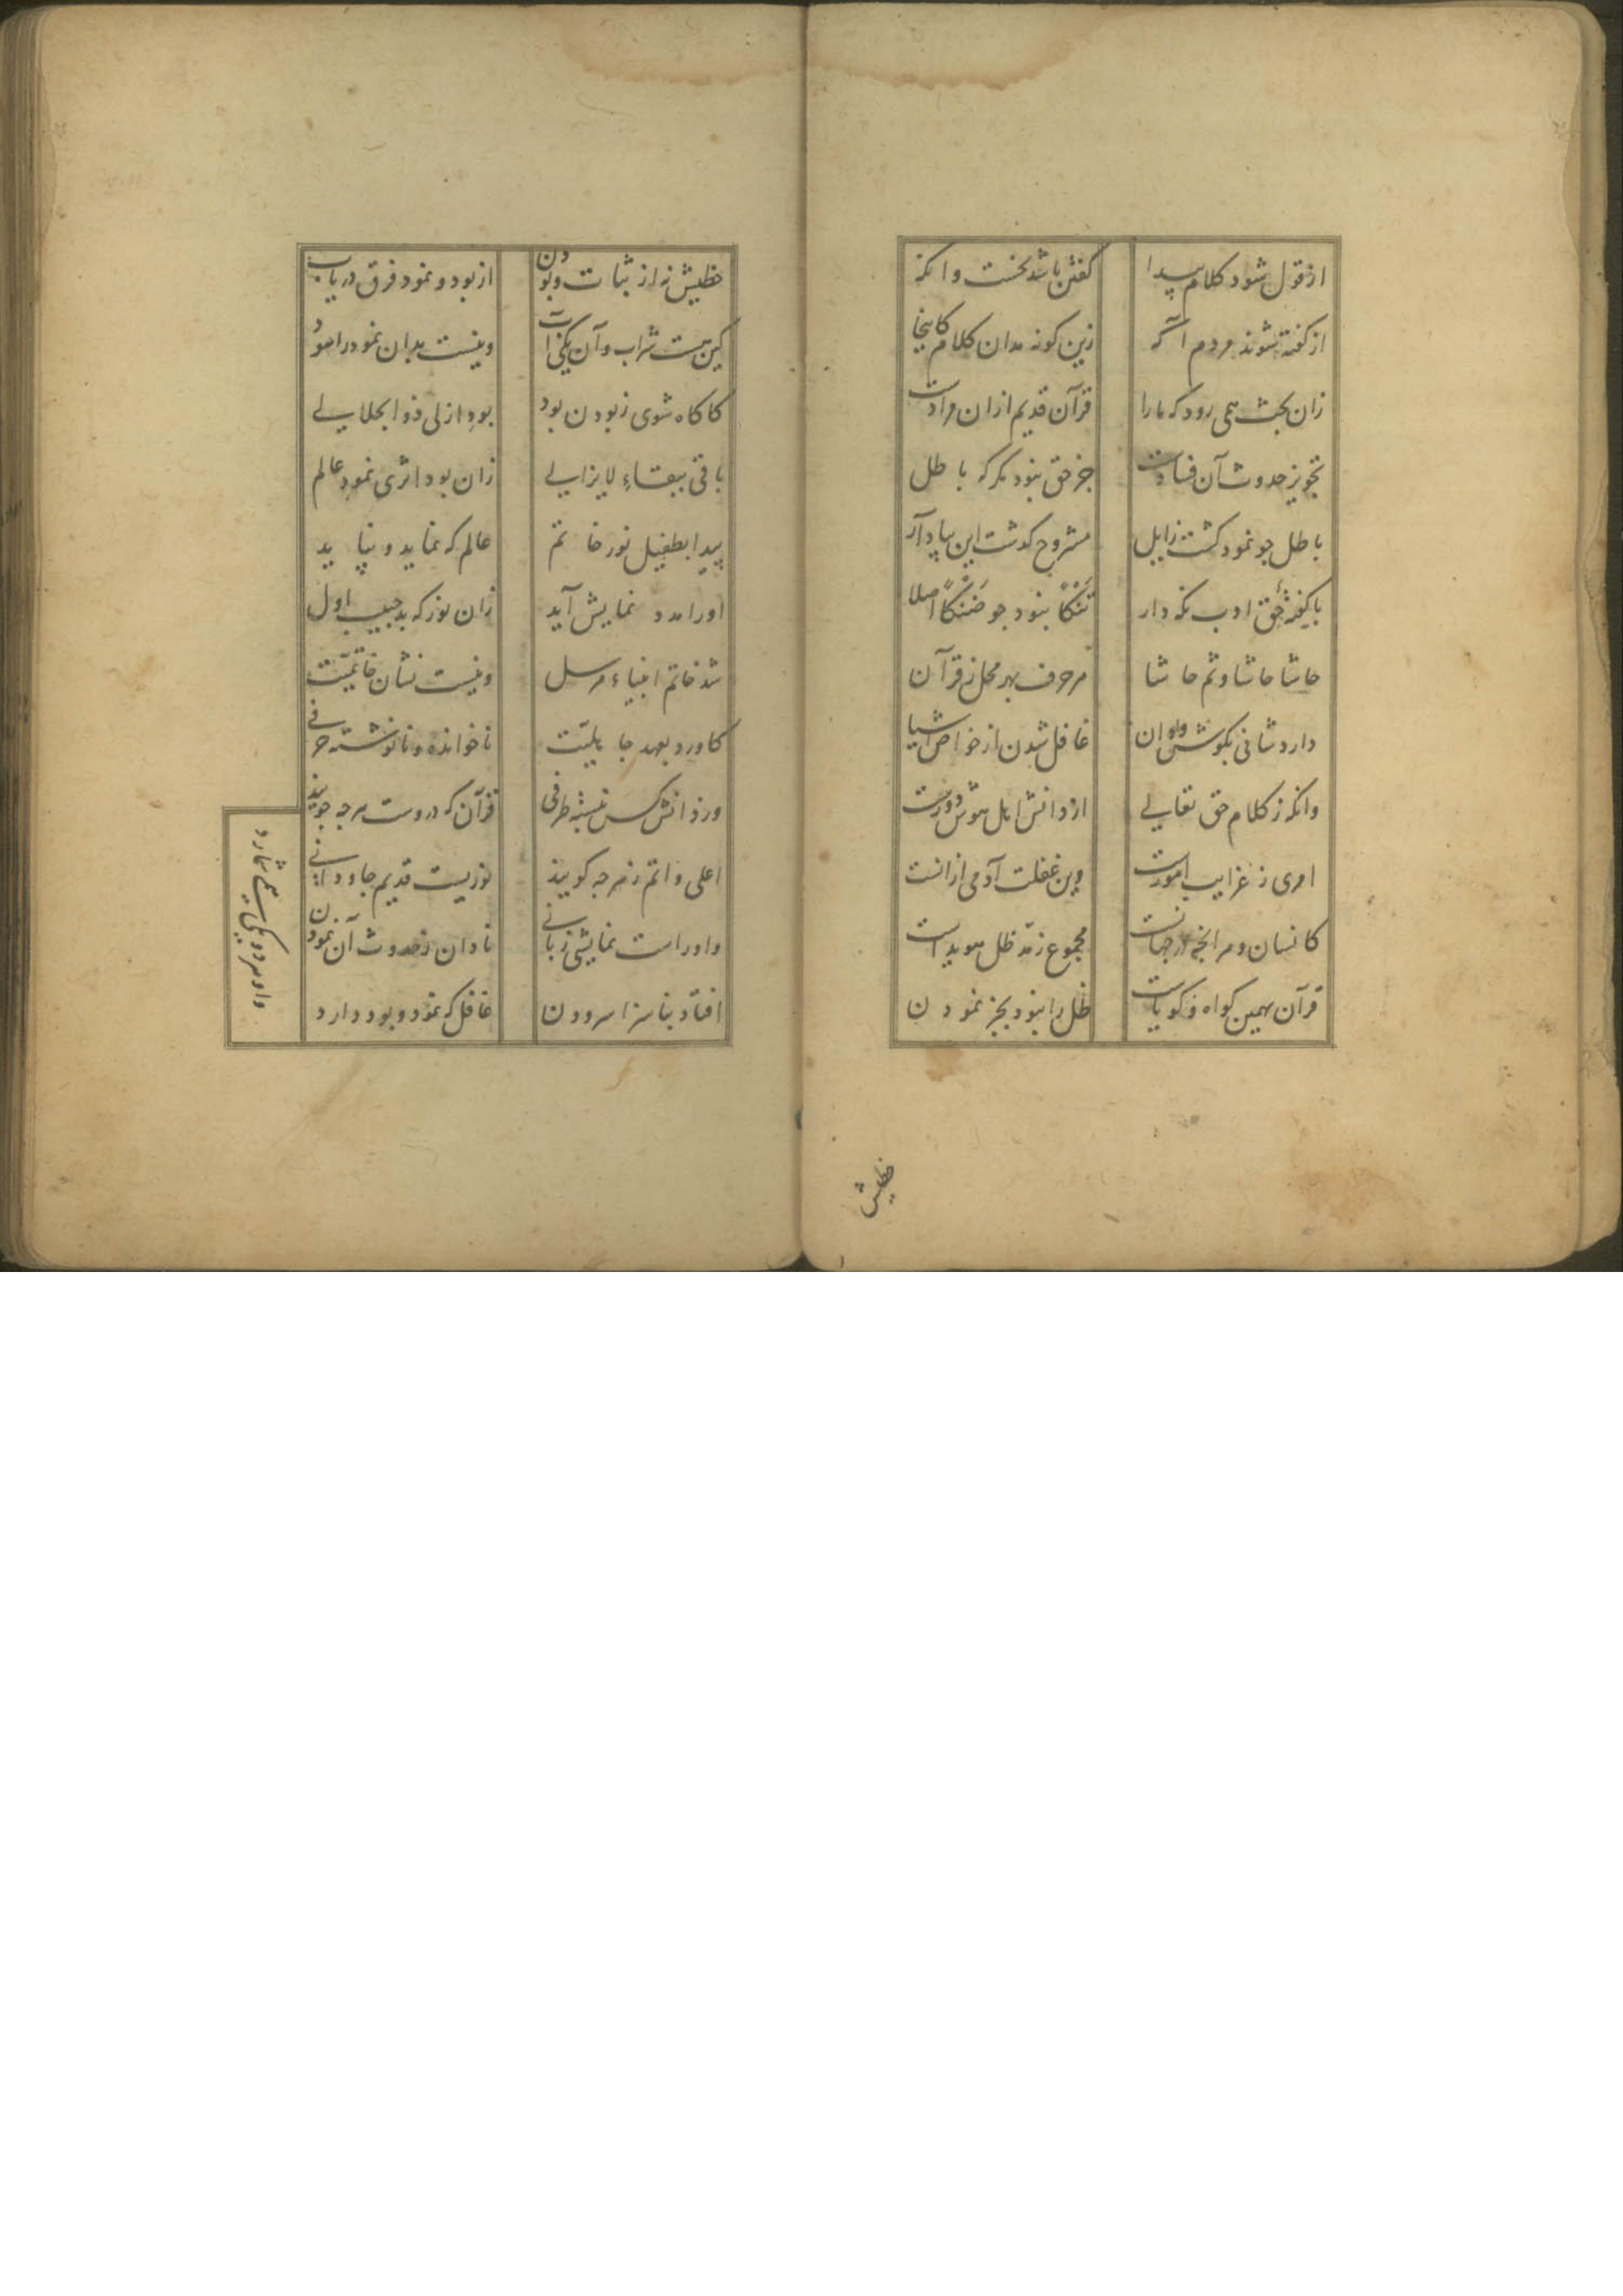 از قول شود کلام پیدا
کفتن باشد نخست وانکه
از کفته شوند مردم آکه
زین کونه مدان کلام کاینجا
زان بحث همی رود که ما را
قرآن قدیم ازان مرادست
تجویز حدوث آن فسادست
جز حق نبود مکر که باطل
باطل جو نمود کشت زایل
مشروح کدشت این بیاد آر
با کفتهٔ حق ادب نکه دار
تَنْکًا نبود جو ضَنْکًا اصلا
حاشا حاشا و ثم حاشا
هر حرف بهر محل ز قرآن
دارد شانی بکوش و
غافل شدن از خواص اشیا
وانکه ز کلام حق تعالی
از دانش اهل هوش دورست
امری ز غرایب امورست
وین غفلت آدمی ازانست
کانسان و هر انجه در جهانست
مجموع ز مدّ ظل هویداست
قرآن بهمین کواه و کویاست
ظل را نبود بجز نمودن
خطیش
خطیش نه از ثبات و بودن
از بود و نمود فرق دریاب
کین هست شراب و آن یکی
ونیست بدان نمود را
کاکاه شوی ز بودن بود
بود ازلی ذو الجلالی
باقی ببقاءِ لایزالی
زان بود اثری نمودِ عالم
پیدا بطفیل نور خاتم
عالم که نماید و نپاید
او را مدد نمایش آید
زان نور که بد حبیب اول
شد خاتم انبیاء مرسل
ونیست نشان خاتمیّت
کاورد بعهد جاهلیّت
ناخوانده و نانوشته حرفی
ور دانش کس نبسته طرفی
قرآن که دروست هرجه جویند
اعلی و اتم ز هرجه کویند
نوریست قدیم جاودانی
واوراست نمایشی زبانی
نادان ز حدوث آن نمودن
افتاد بناسزا سرودن
غافل که نمود و بود دارد
واو هر دو یکی همی شمارد